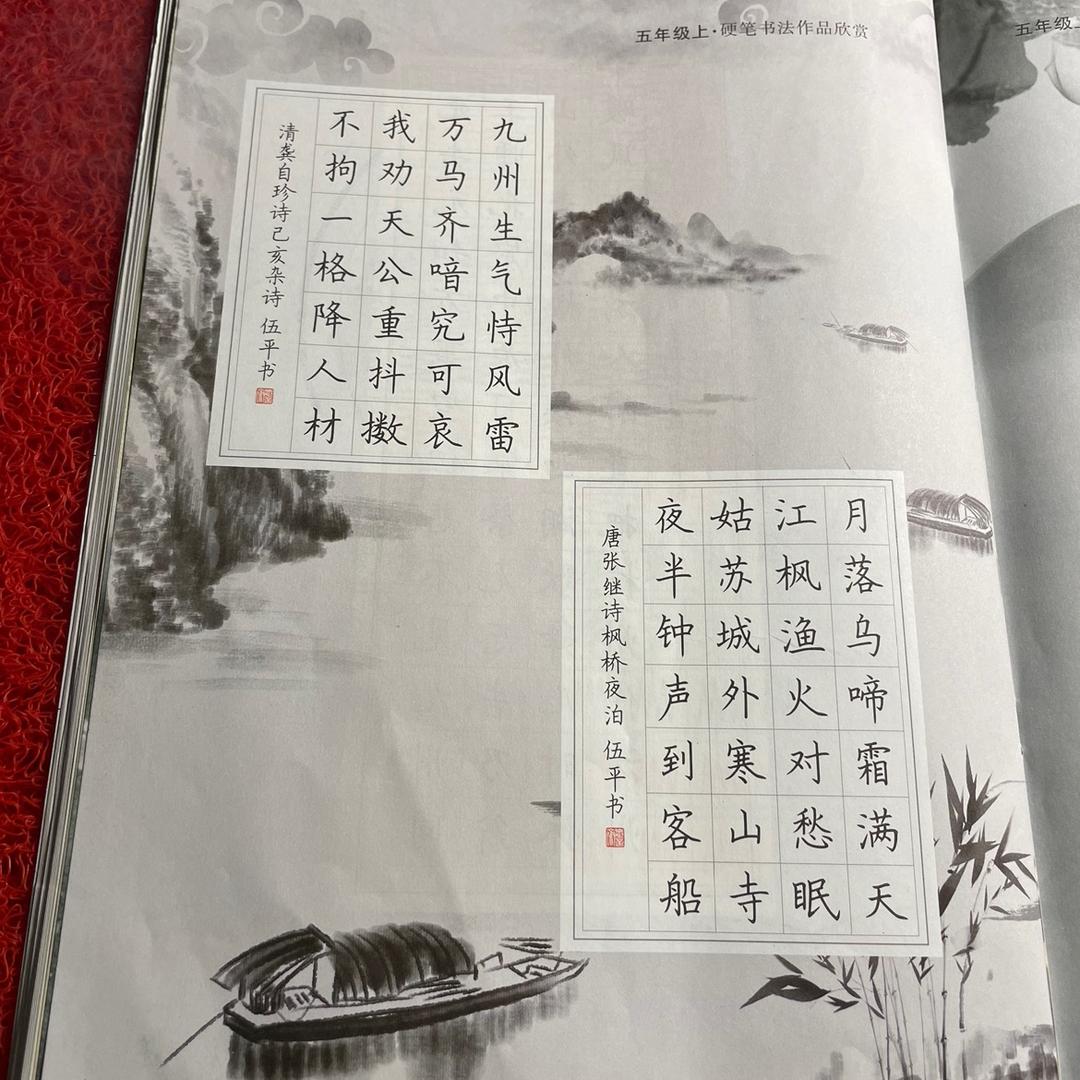 五年级上·硬笔书法作品欣赏
五年级上
九州生气恃风雷
万马齐喑究可哀
我劝天公重抖擞
不拘一格降人材
清龚自珍诗己亥杂诗 伍平书
月落乌啼霜满天
江枫渔火对愁眠
姑苏城外寒山寺
夜半钟声到客船
唐张继诗枫桥夜泊 伍平书